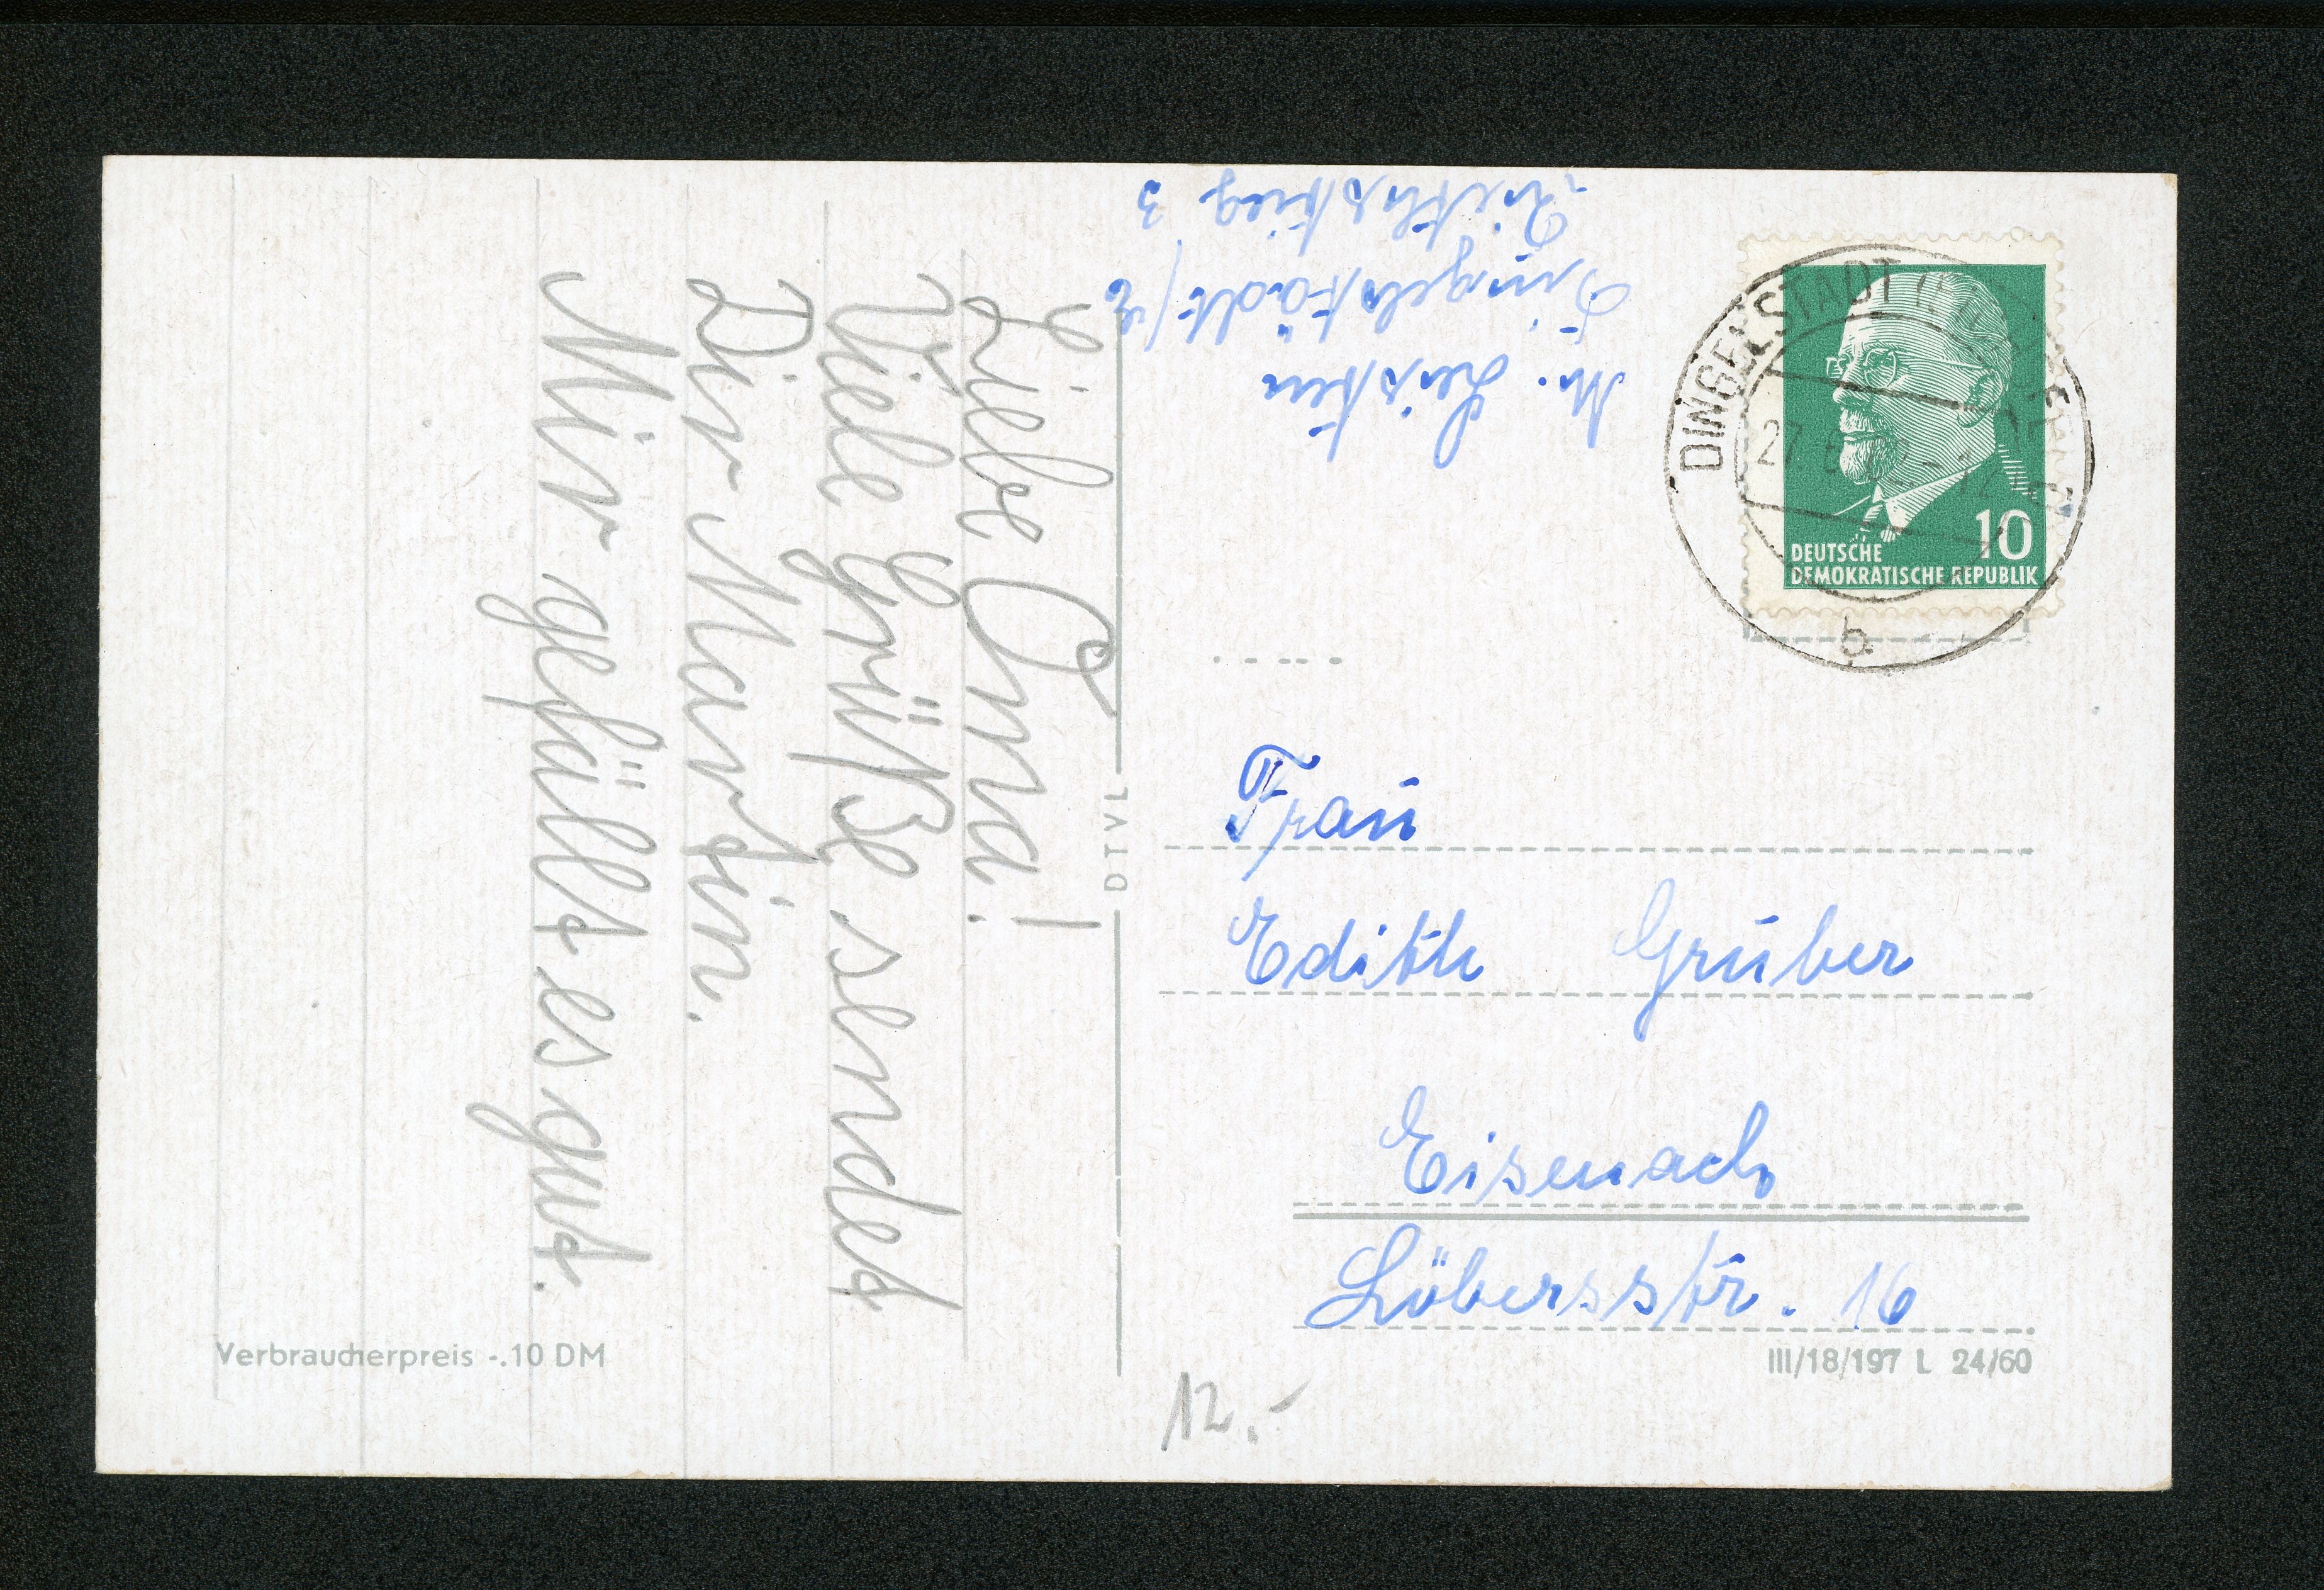 Liebe Oma!
Viele Grüße sendet
Dir Martin.
Mir gefällt es gut.
Verbraucherpreis -.10 DM
DTVL
M.
Dingelstädt /E
3
DINGELSTÄDT
27.
b
DEUTSCHE
DEMOKRATISCHE REPUBLIK
10
Frau
Edith Gruber
Eisenach
Löbersstr. 16
III/18/197 L 24/60
12.-